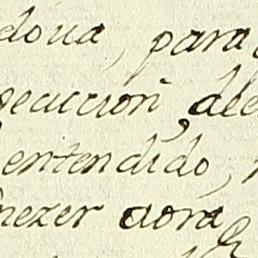 doua, para
secucion, ale
entendido,
nezer aora